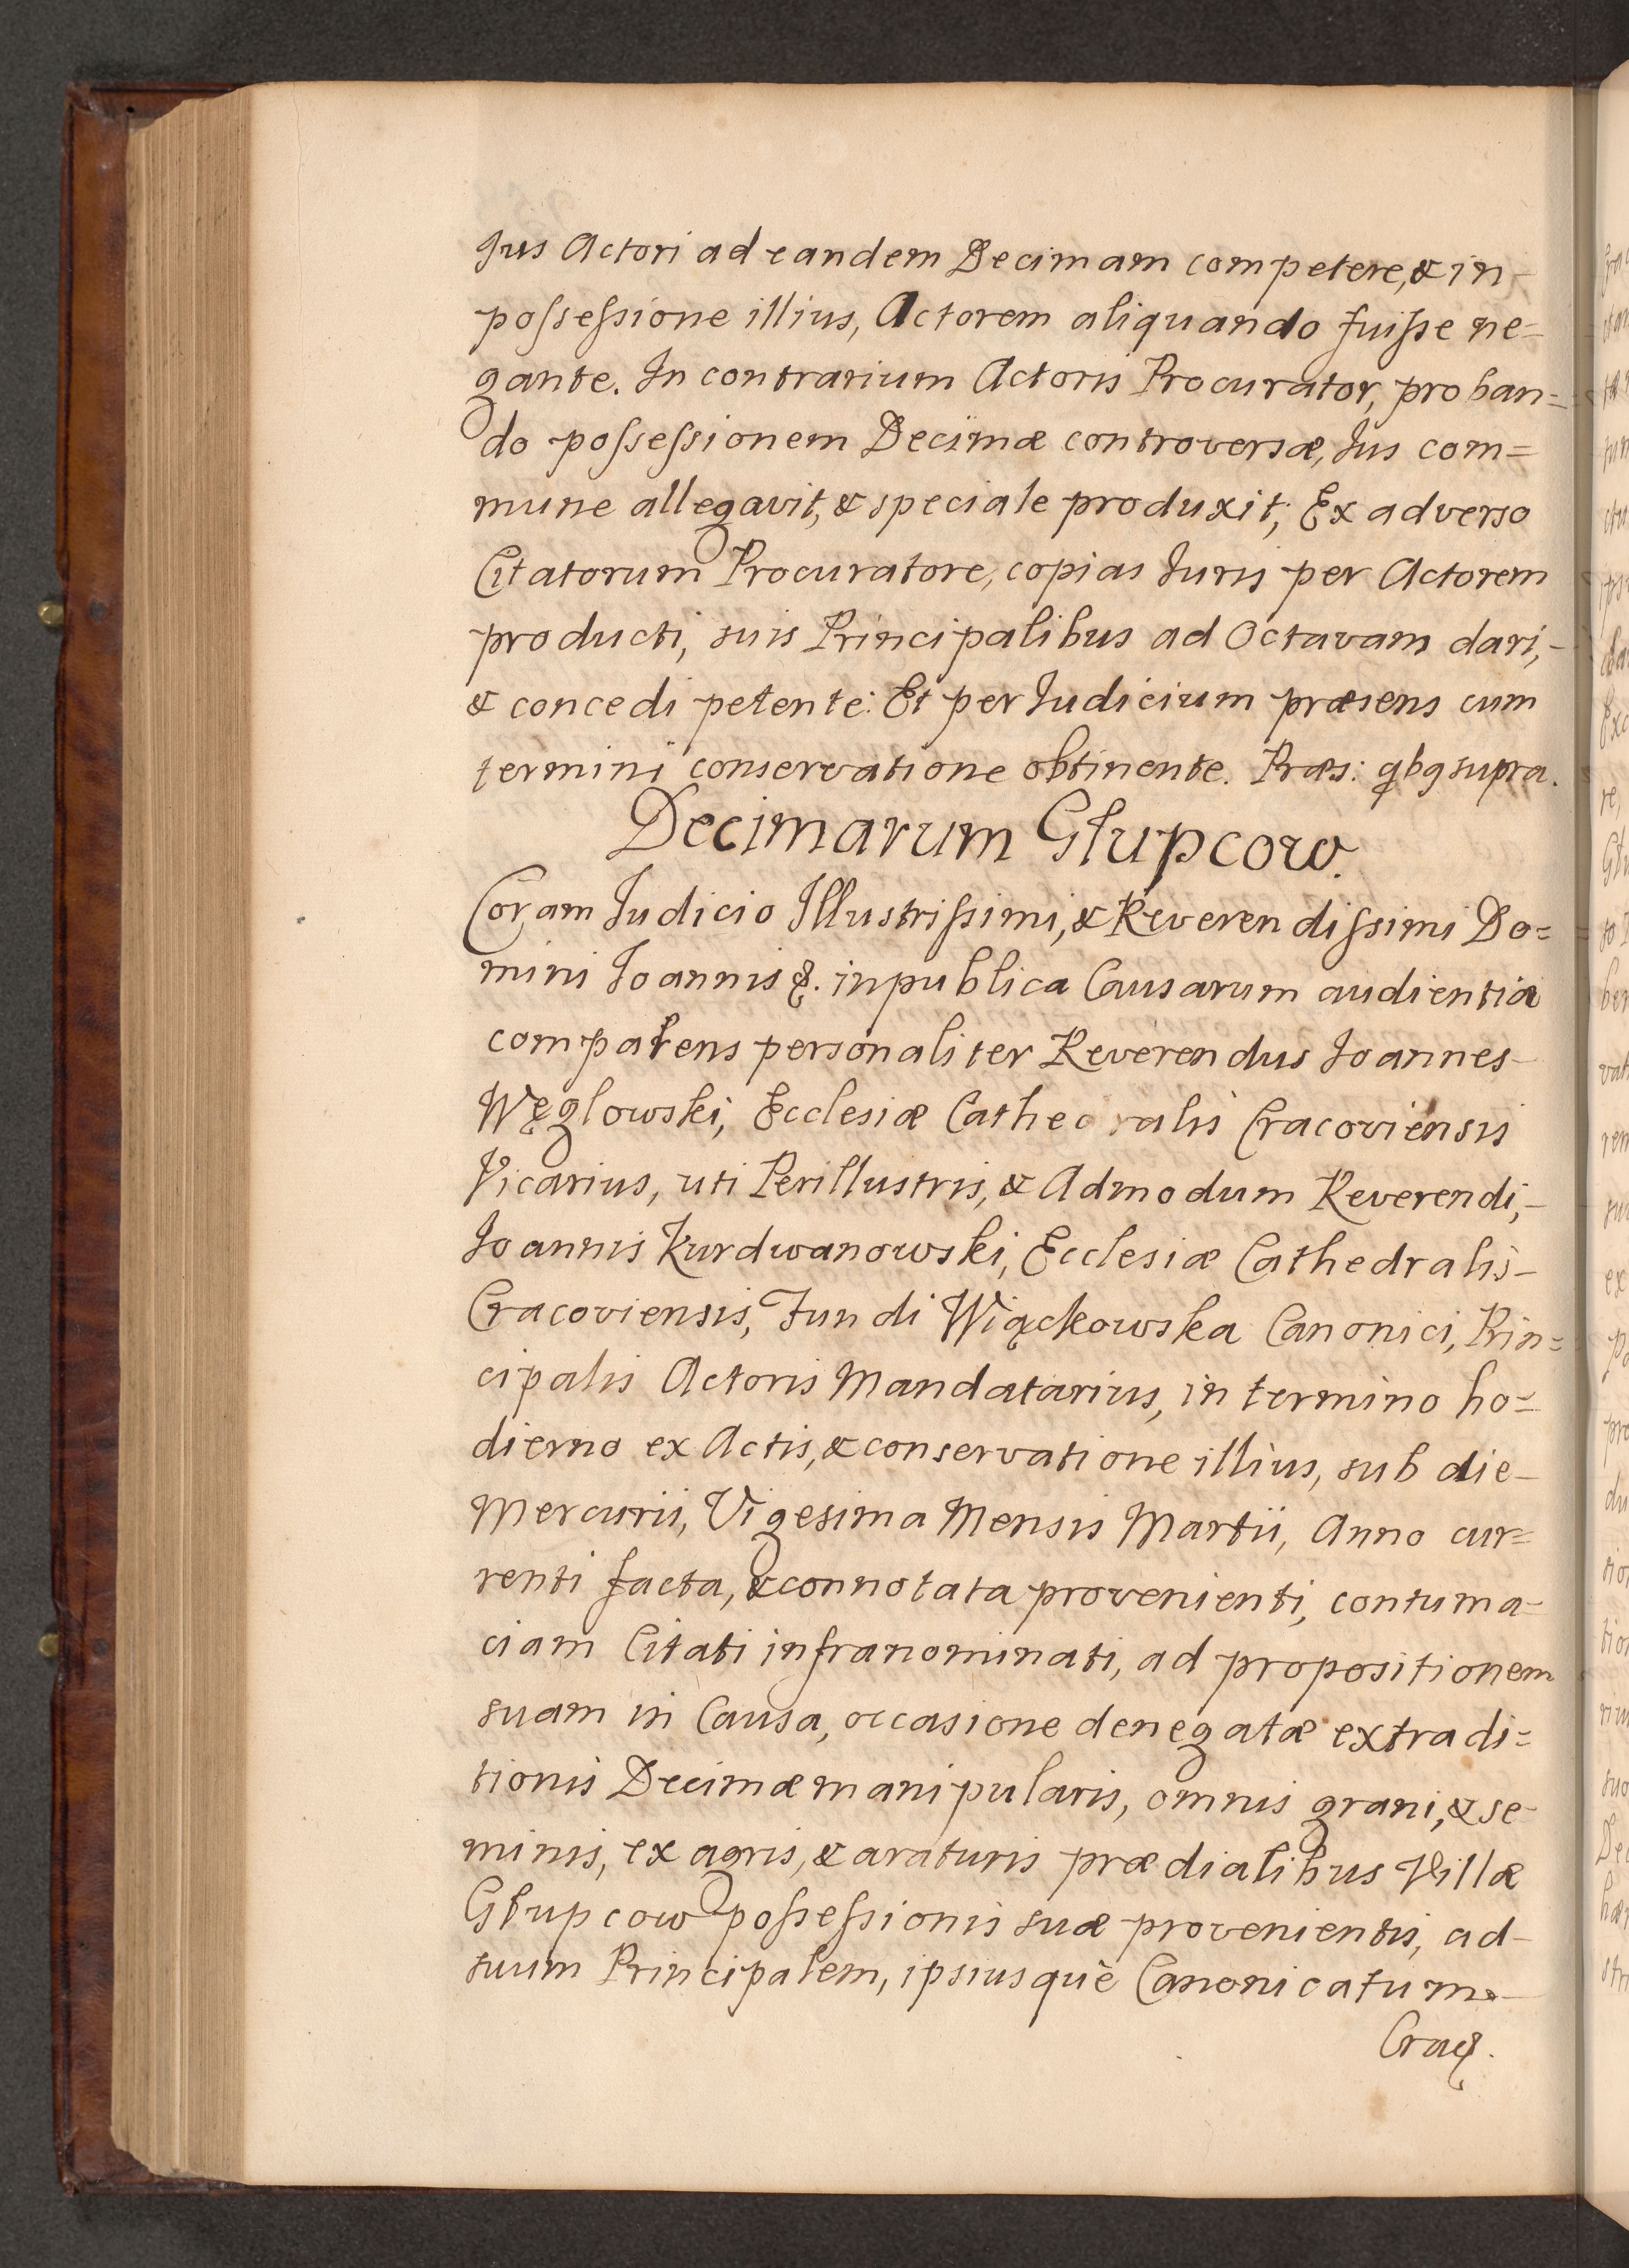 Jus Actori ad eandem Decimam competere, & in-
possessione illius, Actorem aliquando fuisse ne=
gante. In contrarium Actoris Procurator, proban=
do possessionem Decimæ controversæ, Jus com=
mune allegavit, & speciale produxit; Ex adverso
Citatorum Procuratore, copias Juris per Actorem
producti, suis Principalibus ad Octavam dari,-
& concedi petente: Et per Judicium præsens cum
termini conservatione obtinente. Præs: qbg supra.
Decimarum Głupcow.
Coram Judicio Illustrissimi, & Reverendissimi Do=
mini Joannis &. in publica Causarum audientia
comparens personaliter Reverendus Joannes-
Węglowski, Ecclesiæ Cathedralis Cracoviensis
Vicarius, uti Perillustris, & Admodum Reverendi,-
Joannis Kurdwanowski, Ecclesiæ Cathedralis-
Cracoviensis, Fundi Więckowska Canonici, Prin=
cipalis Actoris Mandatarius, in termino ho=
dierno ex Actis, & conservatione illius, sub die-
Mercurii, Vigesima Mensis Martii, Anno cur=
renti facta, & connotata provenienti, contuma=
ciam Citati infranominati, ad propositionem
suam in Causa, occasione denegatæ extradi=
tionis Decimæ manipularis, omnis grani, & se-
minis, ex agris, & araturis prædialibus Villæ
Głupcow possessionis suæ provenientis, ad-
suum Principalem, ipsiusquè Canonicatum-